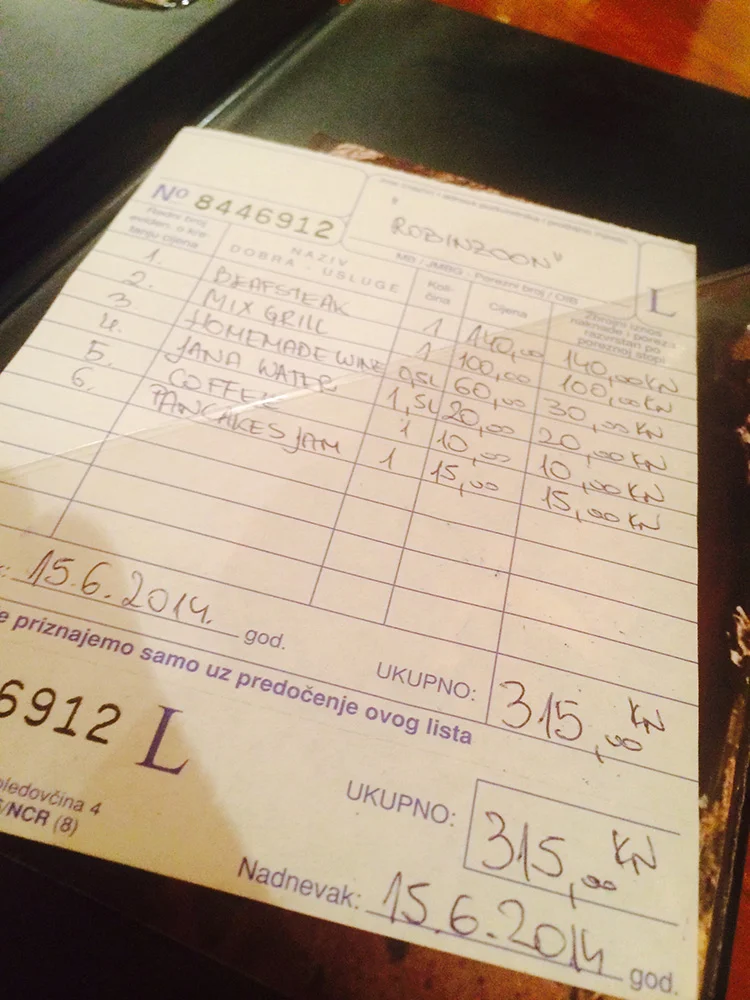 No 8446912
"ROBINZOON"
L
Redni broj
eviden. o kre-
tanju cijena
NAZIV
DOBRA - USLUGE
MB / JMBG - Porezni broj / OIB
Koli-
čina
Cijena
Zbrojni iznos
naknade i poreza
razvrstan po
poreznoj stopi
1. BEAFSTEAK 1 140,00 140,00KN
2. MIX GRILL 1 100,00 100,00KN
3. HOMEMADE WINE 0,5L 60,00 30,00KN
4. JANA WATER 1,5L 20,00 20,00KN
5. COFFEE 1 10,00 10,00KN
6. PANCAKES JAM 1 15,00 15,00KN
15.6.2014. god.
UKUPNO: 315,00 KN
priznajemo samo uz predočenje ovog lista
6912 L
UKUPNO: 315,00 KN
4
/NCR (8)
Nadnevak: 15.6.2014 god.